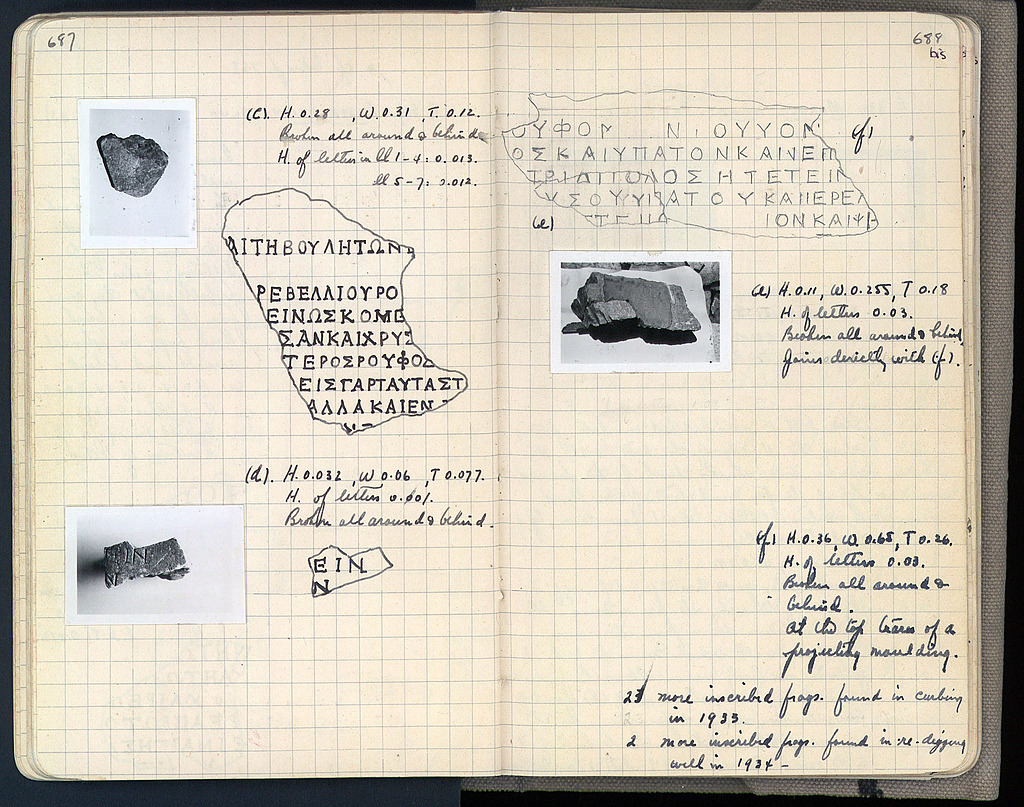 687
(c). H. 0.28 , W. 0.31, T. 0.12.
Broken all around & behind
H. of letters in ll 1-4: 0.013.
ll 5-7: 0.012.
ΑΙΤΗΒΟΥΛΗΤΩΝ
ΡΕΒΕΛΛΙΟΥΡΟ
ΕΙΝΩΣΚΟΜΕ
ΣΑΝΚΑΙΧΡΥΣ
ΤΕΡΟΣΡΟΥΦΟΣ
ΕΙΣΓΑΡΤΑΥΤΑΣΤ
ΑΛΛΑΚΑΙΕΝ
(d). H. 0.032, W 0.06, T 0.077.
H. of letters 0.001.
Broken all around & behind.
ΕΙΝ
Ν
689
bis
ΟΥΦΟΝ Ν ΙΟΥΥΟΝ (f)
ΟΣΚΑΙΥΠΑΤΟΝΚΑΙΝΕΠ
ΤΡΙΑΠΠΟΛΟΣΗΤΕΤΕΙΝ
ΥΣΟΥΥΠΑΤΟΥΚΑΙΙΕΡΕΛ
(e) ΙΟΝΚΑΙΨ
(e) H. 0.11, W. 0.255, T 0.18
H. of letters 0.03.
Broken all around & behind,
Joins directly with (f).
(f) H. 0.36, W. 0.65, T 0.26.
H. of letters 0.03.
Broken all around &
behind.
At the top traces of a
projecting moulding.
23 more inscribed frags. found in curbing
in 1933.
2 more inscribed frags. found in re-digging
well in 1934 -